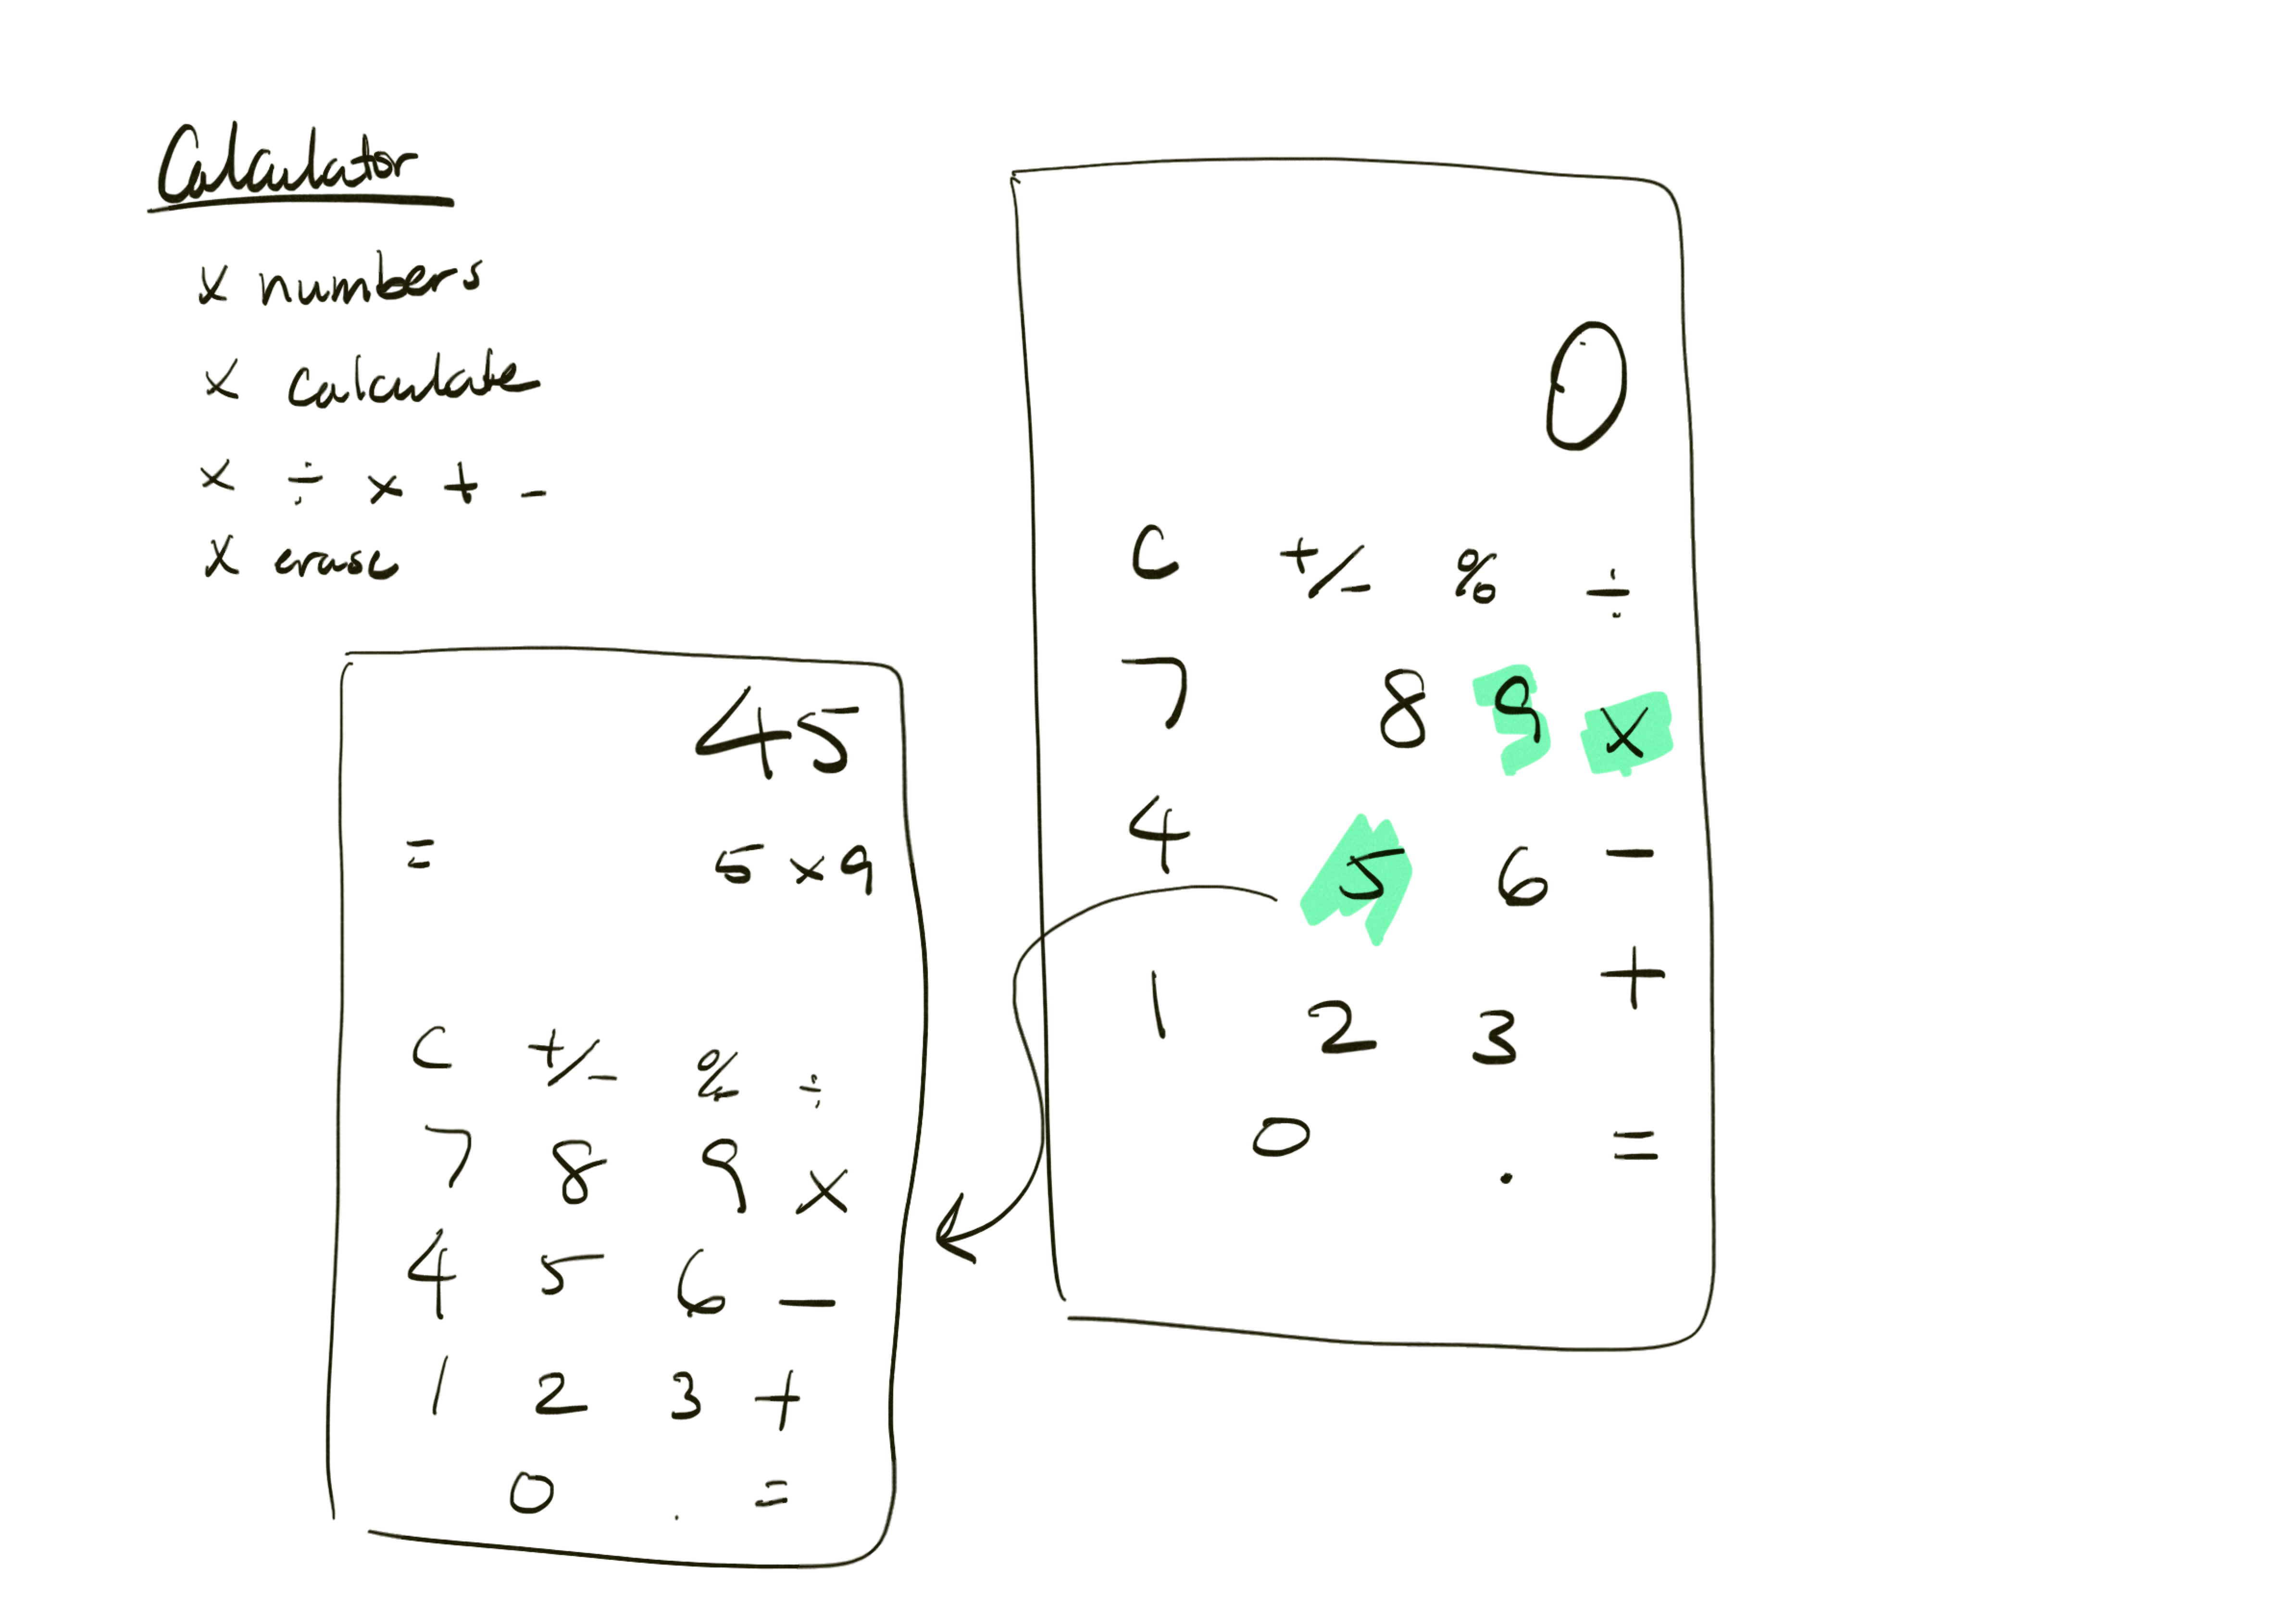 Calculator
x numbers
x calculate
x ÷ x + -
x erase
0
C +/- % ÷
7 8 9 x
4 5 6 -
1 2 3 +
0 . =
45
= 5 x 9
C +/- % ÷
7 8 9 x
4 5 6 -
1 2 3 +
0 . =